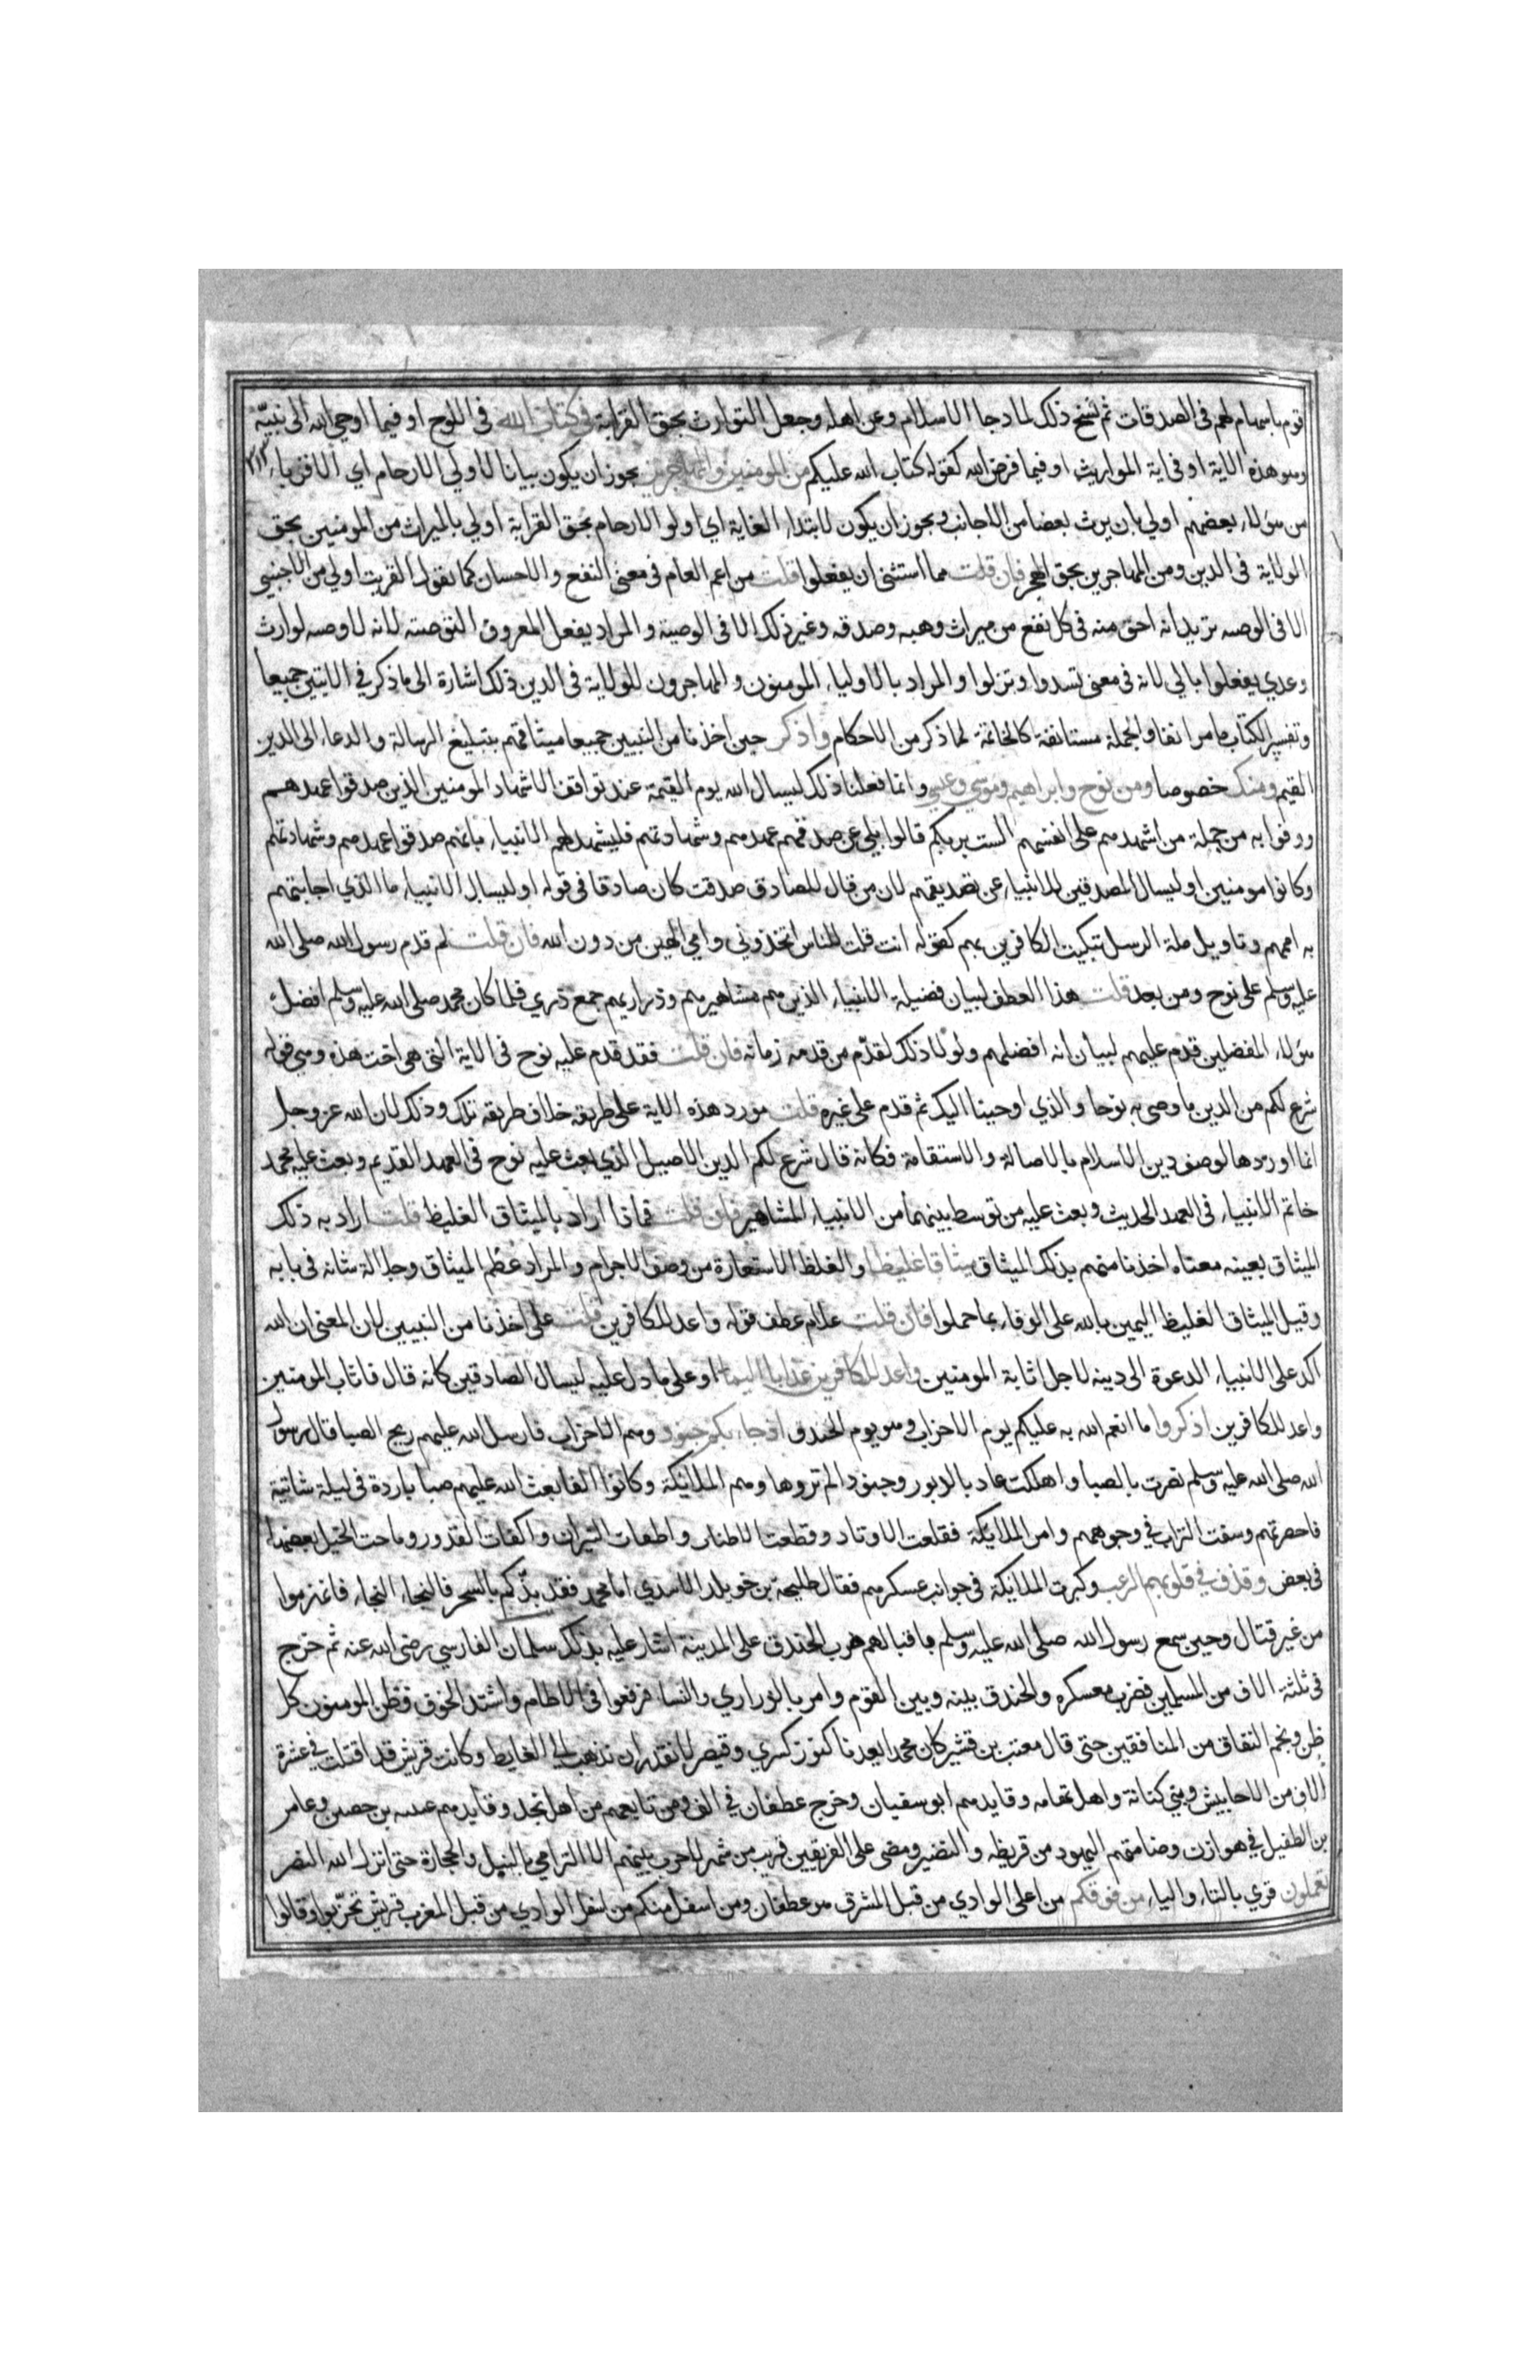 قوم باسهام لهم فى الصدقات ثم نسخ ذلك لما دجا الاسلام وعز اهله وجعل التوارث بحق القرابة فى كتاب الله فى اللوح او فيما اوحى الله الى نبيه
وهو هذه الاية او فى اية المواريث او فيما فرض الله كقوله كتاب الله عليكم من المومنين والمهاجرين يجوز ان يكون بيانا لاولي الارحام اي الاقرباء
من هؤلاء بعضهم اولي بان يرث بعضا من الاجانب ويجوز ان يكون لابتداء الغاية اي اولو الارحام بحق القرابة اولي بالميراث من المومنين بحق
الولاية فى الدين ومن المهاجرين بحق الهجر فان قلت مما استثنى ان يفعلوا قلت من اعم العام فى معنى النفع والاحسان كما تقول القريب اولي من الاجنبي
الا فى الوصيه تريد انه احق منه فى كل نفع من ميراث وهبه وصدقه وغير ذلك الا فى الوصية والمراد بفعل المعروف التوصيته لانه لا وصيه لوارث
وعدي يفعلوا بالي لانه فى معنى تسدوا وتزلوا والمراد بالاولياء المومنون والمهاجرون للولاية فى الدين ذلك اشارة الى ما ذكر في الايتين جميعا
وتفسير الكتاب ما مر انفا والجملة مستانفة كالخاتمة لما ذكر من الاحكام واذكر حين اخذنا من النبيين جميعا ميثاقهم بتبليغ الرسالة والدعاء الى الدين
القيم ومنك خصوصا ومن نوح وابراهيم وموسي وعيسي وانما فعلنا ذلك ليسال الله يوم القيمة عند تواقف الاشهاد المومنين الذين صدقوا عهدهم
ووفوا به من جملة من اشهدهم على انفسهم الست بربكم قالوا بلي عن صدقهم عهدهم وشهادتهم فليشهد لهم الانبياء بانهم صدقوا عهدهم وشهادتهم
وكانوا مومنين او ليسال المصدقين للانبياء عن تصديقهم لان من قال للصادق صدقت كان صادقا فى قوله او ليسال الانبياء ما الذي اجابتهم
به اممهم وتاويل مسلة الرسل تبكيت الكافرين بهم كقوله انت قلت للناس اتخذوني وامي الهين من دون الله فان قلت لم قدم رسول الله صلى الله
عليه وسلم على نوح ومن بعد قلت هذا العطف لبيان فضيلة الانبياء الذين هم مشاهيرهم وذراريهم جمع ذري فلما كان محمد صلى الله عليه وسلم افضل
هؤلاء المفضلين قدم عليهم لبيان انه افضلهم ولولا ذلك لقدم من قدمه زمانه فان قلت فقد قدم عليه نوح فى الاية التى هى اخت هذه وهي قوله
شرع لكم من الدين ما وصى به نوحا والذي اوحينا اليك ثم قدم على غيره قلت مورد هذه الاية على طريقة خلاف طريقه تلك وذلك لان الله عز وجل
انما اوردها لوصف دين الاسلام بالاصالة والاستقامة فكانه قال شرع لكم الدين الاصيل الذي بعث عليه نوح فى العهد القديم وبعث عليه محمد
خاتم الانبياء فى العهد الحديث وبعث عليه من توسط بينهما من الانبياء المشاهير فان قلت فماذا اراد بالميثاق الغليظ قلت اراد به ذلك
الميثاق بعينه معناه اخذنا منهم بذلك الميثاق ميثاقا غليظا والغلظ الاستعارة من وصف الاجرام والمراد عظم الميثاق وجلالة شانه فى بابه
وقيل الميثاق الغليظ اليمين بالله على الوفاء بما حملوا فان قلت علام عطف قوله واعد للكافرين قلت على اخذنا من النبيين لان المعنى ان الله
اكد على الانبياء الدعوة الى دينه لاجل اثابة المومنين واعد للكافرين عذابا اليما او على ما دل عليه ليسال الصادقين كانه قال فاثاب المومنين
واعد للكافرين اذكروا ما انعم الله به عليكم يوم الاحزاب وهو يوم الخندق اذ جاءتكم جنود وهم الاحزاب فارسل الله عليهم ريح الصبا قال رسول
الله صلى الله عليه وسلم نصرت بالصبا واهلكت عاد بالدبور وجنودا لم تروها وهم الملائكة وكانوا الفا بعث الله عليهم صبا باردة فى ليلة شاتية
فاحصرتهم وسفت التراب في وجوههم وامر الملائكة فقلعت الاوتاد وقطعت الاطناب واطفات النيران واكفات القدور وماجت الخيل بعضها
فى بعض وقذف في قلوبهم الرعب وكبرت الملائكة فى جوانب عسكرهم فقال طليحة بن خويلد الاسدي اما محمد فقد بدكم بالسحر فالنجاء النجاء فانهزموا
من غير قتال وحين سمع رسول الله صلى الله عليه وسلم باقبالهم ضرب الخندق على المدينة اشار عليه بذلك سلمان الفارسي رضى الله عنه ثم خرج
فى ثلثة الاف من المسلمين فضرب معسكره والخندق بينه وبين القوم وامر بالذراري والنسا فرفعوا فى الاطام واشتد الخوف فظن المومنون كل
ظن ونجم النفاق من المنافقين حتى قال معتب بن قشير كان محمد يعدنا كنوز كسري وقيصر لا نقدر ان نذهب الى الغايط وكانت قريش قد اقبلت في عشرة
الاف من الاحابيش وبني كنانة واهل تهامه وقايدهم ابو سفيان وخرج غطفان في الف ومن تابعهم من اهل نجد وقايدهم عيينه بن حصن وعامر
بن الطفيل في هوازن وضامتهم اليهود من قريظه والنضير ومضى على الفريقين قريب من شهر لا حرب بينهم الا الترامي بالنبل والحجارة حتى انزل الله النصر
تعملون قري بالتاء والياء من فوقكم من اعلى الوادي من قبل المشرق من غطفان ومن اسفل منكم من اسفل الوادي من قبل المغرب قريش تحزبوا وقالوا